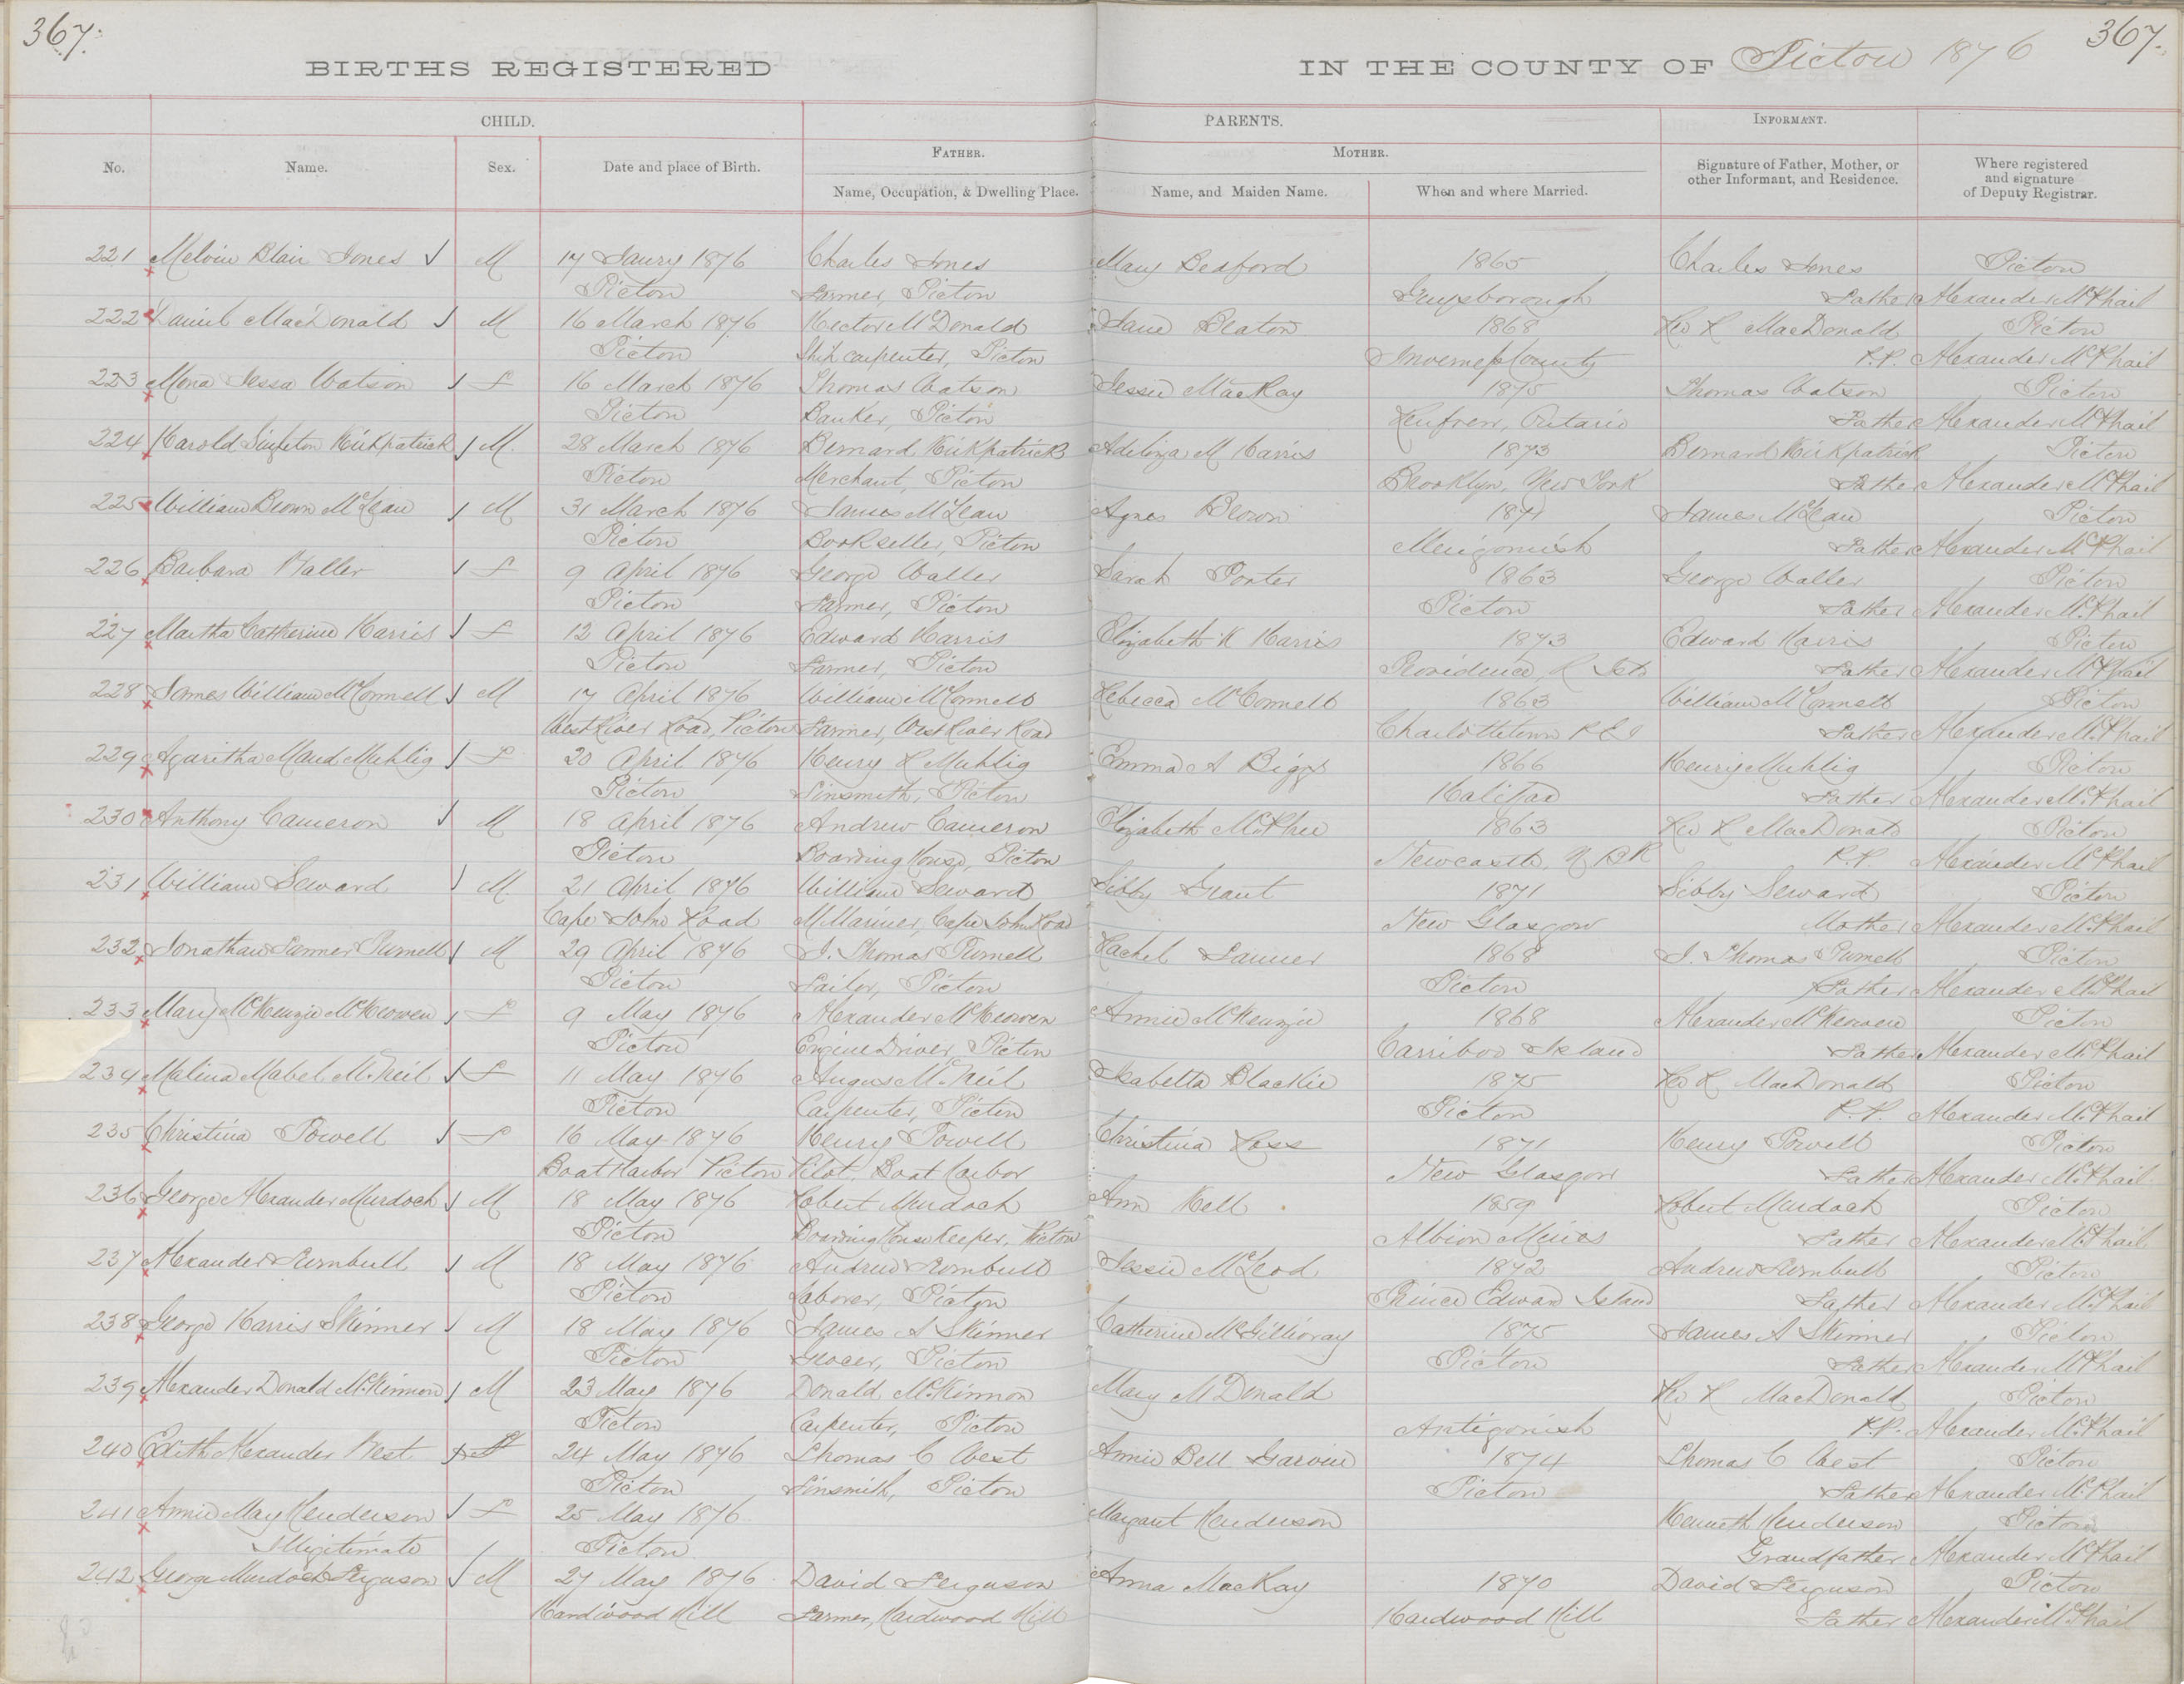 367.
367.
BIRTHS REGISTERED
IN THE COUNTY OF Pictou 1876
CHILD.
PARENTS.
INFORMANT.
No.
Name.
Sex.
Date and place of Birth.
FATHER.
Name, Occupation, & Dwelling Place.
MOTHER.
Name, and Maiden Name.
When and where Married.
Signature of Father, Mother, or other Informant, and Residence.
Where registered and signature of Deputy Registrar.
221 Melvin Blair Jones M 17 Jaury 1876 Charles Jones Mary Bedford 1865 Charles Jones Pictou
Pictou Farmer, Pictou Guysborough Father Alexander McPhail
222 Daniel MacDonald M 16 March 1876 Hector McDonald Jane Beaton 1868 Rev R MacDonald Pictou
Pictou Ship carpenter, Pictou Inverness County P.P. Alexander McPhail
223 Mona Jessa Watson F 16 March 1876 Thomas Watson Jessie MacKay 1875 Thomas Watson Pictou
Pictou Banker, Pictou Renfrew, Ontario Father Alexander McPhail
224 Harold Singleton Kirkpatrick M. 28 March 1876 Bernard Kirkpatrick Adeliza M Harris 1873 Bernard Kirkpatrick Pictou
Pictou Merchant, Pictou Brooklyn, New York Father Alexander McPhail
225 William Brown McLean M 31 March 1876 James McLean Agnes Brown 1871 James McLean Pictou
Pictou Bookseller, Pictou Merigomish Father Alexander McPhail
226 Barbara Waller F 9 April 1876 George Waller Sarah Porter 1863 George Waller Pictou
Pictou Farmer, Pictou Pictou Father Alexander McPhail
227 Martha Catherine Harris F 12 April 1876 Edward Harris Elizabeth K Harris 1873 Edward Harris Pictou
Pictou Farmer, Pictou Providence, R Isld Father Alexander McPhail
228 James William McConnell M 17 April 1876 William McConnell Rebecca McConnell 1863 William McConnell Pictou
West River Road, Pictou Farmer, West River Road Charlottetown P E I Father Alexander McPhail
229 Agaritha Maud Muhlig F 20 April 1876 Henry R Muhlig Emma A Biggs 1866 Henry Muhlig Pictou
Pictou Tinsmith, Pictou Halifax Father Alexander McPhail
230 Anthony Cameron M 18 April 1876 Andrew Cameron Elizabeth McPhee 1863 Rev R MacDonald Pictou
Pictou Boarding House, Pictou Newcastle, N BK P.P. Alexander McPhail
231 William Seward M 21 April 1876 William Seward Sibby Grant 1871 Sibby Seward Pictou
Cape John Road M Mariner, Cape John Road New Glasgow Mother Alexander McPhail
232 Jonathan Tanner Purnell M 29 April 1876 J. Thomas Purnell Rachel Tanner 1868 J. Thomas Purnell Pictou
Pictou Tailor, Pictou Pictou Father Alexander McPhail
233 Mary McKenzie McKeowen F 9 May 1876 Alexander McKeowen Annie McKenzie 1868 Alexander McKeowen Pictou
Pictou Engine Driver, Pictou Carriboo Island Father Alexander McPhail
234 Malina Mabel McNeil F 11 May 1876 Angus McNeil Isabella Blackie 1875 Rev R MacDonald Pictou
Pictou Carpenter, Pictou Pictou P.P. Alexander McPhail
235 Christina Powell F 16 May 1876 Henry Powell Christina Ross 1871 Henry Powell Pictou
Boat Harbor Pictou Pilot, Boat Harbor New Glasgow Father Alexander McPhail
236 George Alexander Murdoch M 18 May 1876 Robert Murdoch Ann Kell 1859 Robert Murdoch Pictou
Pictou Boarding House Keeper, Pictou Albion Mines Father Alexander McPhail
237 Alexander Turnbull M 18 May 1876 Andrew Turnbull Jessie McLeod 1872 Andrew Turnbull Pictou
Pictou Laborer, Pictou Prince Edward Island Father Alexander McPhail
238 George Harris Skinner M 18 May 1876 James A Skinner Catherine McGillivray 1875 James A Skinner Pictou
Pictou Grocer, Pictou Pictou Father Alexander McPhail
239 Alexander Donald McKinnon M 23 May 1876 Donald McKinnon Mary McDonald Rev R MacDonald Pictou
Pictou Carpenter, Pictou Antigonish P.P. Alexander McPhail
240 Edith Alexander West F 24 May 1876 Thomas C West Annie Bell Garvin 1874 Thomas C West Pictou
Pictou Tinsmith, Pictou Pictou Father Alexander McPhail
241 Annie May Henderson F 25 May 1876 Margaret Henderson Kenneth Henderson Pictou
Illigitimate Pictou Grandfather Alexander McPhail
242 George Murdoch Ferguson M 27 May 1876 David Ferguson Anna MacKay 1870 David Ferguson Pictou
Hardwood Hill Farmer, Hardwood Hill Hardwood Hill Father Alexander McPhail